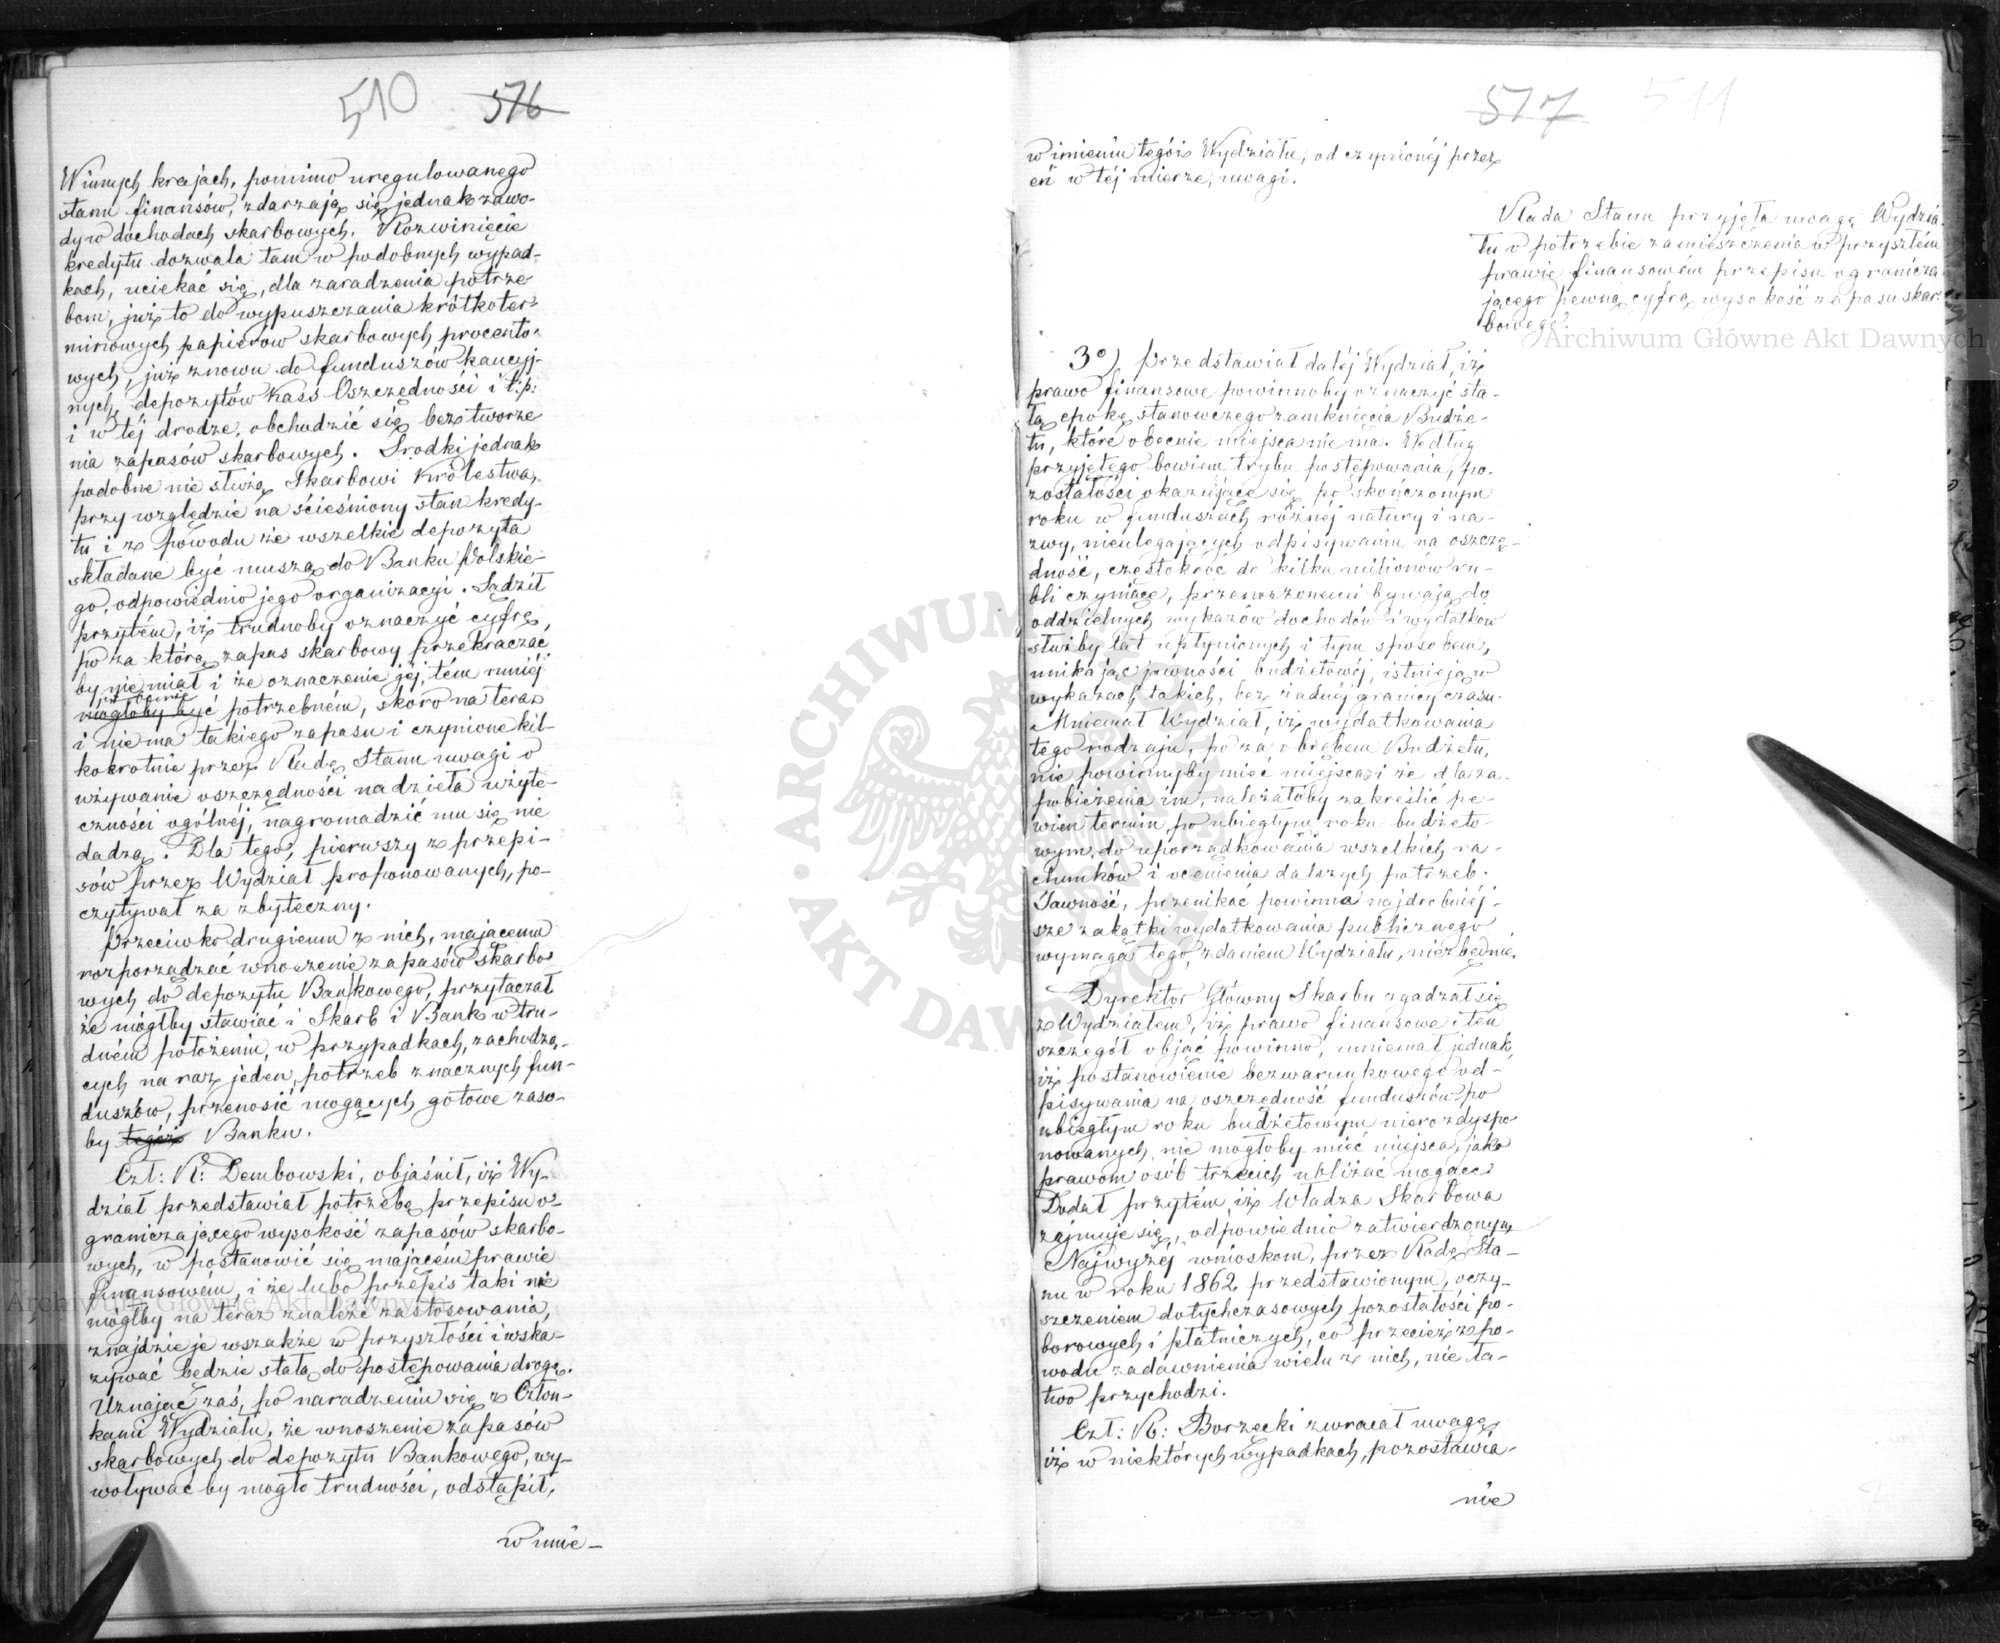 510 576
W innych krajach, pomimo uregulowanego
stanu finansów, zdarzają się jednak zawo-
dy w dochodach skarbowych. Rozwinięcie
kredytu dozwala tam w podobnych wypad-
kach, uciekać się, dla zaradzenia potrze-
bom, już to do wypuszczania krótkoter-
minowych papierów skarbowych procento-
wych, już znowu do funduszów kaucyj-
nych, depozytów Kass Oszczędności i t: p:
i w tej drodze, obchodzić się bez tworze
nia zapasów skarbowych. Środki jednak
podobne nie służą Skarbowi Królestwa,
przy względzie na ścieśniony stan kredy-
tu i z powodu że wszelkie depozyta
składane być muszą do Banku Polskie-
go, odpowiednio jego organizacyi. Sądził
przytém, iż trudnoby oznaczyć cyfrę,
po za którą zapas skarbowy przekraczać
by nie miał i że oznaczenie jéj, tém mniéj
mogłoby być potrzebném, skoro na teraz
i nie ma takiego zapasu i czynione kil-
kokrotnie przez Radę Stanu uwagi o
używanie oszczędności na dzieła użyte-
czności ogólnéj, nagromadzić mu się nie
dadzą. Dla tego, pierwszy z przepi-
sów przez Wydział proponowanych, po-
czytywał za zbyteczny.
Przeciwko drugiemu z nich, mającemu
rozporządzać wnoszenie zapasów skarbo-
wych do depozytu Bankowego, przytaczał
że mógłby stawiać i Skarb i Bank w tru-
dném położeniu, w przypadkach, zachodzą-
cych na raz jeden, potrzeb znacznych fun-
duszów, przenosić mogących gotowe zaso-
by tegoż Banku.
Czł: R: Dembowski, objaśnił, iż Wy-
dział przedstawiał potrzebę przepisu o-
graniczającego wysokość zapasów skarbo-
wych, w postanowić się mającém prawie
finansowém, i że lubo przepis taki nie
mógłby na teraz znaleźć zastosowania,
znajdzie je wszakże w przyszłości i wska-
zywać będzie stałą do postępowania drogę.
Uznając zaś, po naradzeniu się z Człon-
kami Wydziału, że wnoszenie zapasów
skarbowych do depozytu Bankowego, wy-
woływać by mogło trudności, odstąpił,
w imie-
577 511
w imieniu tegóż Wydziału, od czynionéj przez
eń w téj mierze, uwagi.
Rada Stanu przyjęła uwagę Wydzia-
łu o potrzebie zamieszczenia w przyszłém
prawie finansowém przepisu ogranicza
jącego pewną cyfrą wysokość zapasu skar-
bowego.
3º) Przedstawiał daléj Wydział, iż
prawo finansowe powinnoby oznaczyć sta-
łą epokę stanowczego zamknięcia Budże-
tu, któré obecnie miejsca nie ma. Według
przyjętego bowiem trybu postępowania, po-
zostałości okazujące się po skończonym
roku w funduszach różnéj natury i na-
zwy, nieulegających odpisywaniu na oszczę-
dność, częstokroć do kilku milionów ru-
bli czyniące, przenoszonemi bywają do
oddzielnych wykazów dochodów i wydatków
służby lat upłynionych i tym sposobem,
unikając jawności budżetowéj, istnieją w
wykazach takich, bez żadnéj granicy czasu.
Mniemał Wydział, iż wydatkowania
tego rodzaju, po za obrębem Budżetu,
nie powinnyby mieć miejsca i że dla za-
pobieżenia im, należałoby zakreślić pe-
wien termin, po ubiegłym roku budżeto-
wym, do uporządkowania wszelkich ra-
chunków i ocenienia dalszych potrzeb.
Jawność, przenikać powinna najdrobniéj-
sze zakątki wydatkowania publicznego
wymaga tego, zdaniem Wydziału, niezbędnie.
Dyrektor Główny Skarbu zgadzał się
z Wydziałem, iż prawo finansowe i ten
szczegół objąć powinno, mniemał jednak,
iż postanowienie bezwarunkowego od-
pisywania na oszczędność funduszów po
ubiegłym roku budżetowym nierozdyspo-
nowanych, nie mogłoby mieć miejsca, jako
prawom osób trzecich ubliżać mogące.
Dodał przytém, iż Władza Skarbowa
zajmuje się, odpowiednio zatwierdzonym
Najwyżéj wnioskom, przez Radę Sta-
nu w roku 1862 przedstawionym, oczy-
szczeniem dotychczasowych pozostałości po-
borowych i płatniczych, co przecież z po-
wodu zadawnienia wielu z nich, nie ła-
two przychodzi.
Czł: R: Borzęcki zwracał uwagę,
iż w niektórych wypadkach, pozostawia-
nie
ARCHIWUM GŁÓWNE AKT DAWNYCH
Archiwum Główne Akt Dawnych
Archiwum Główne Akt Dawnych